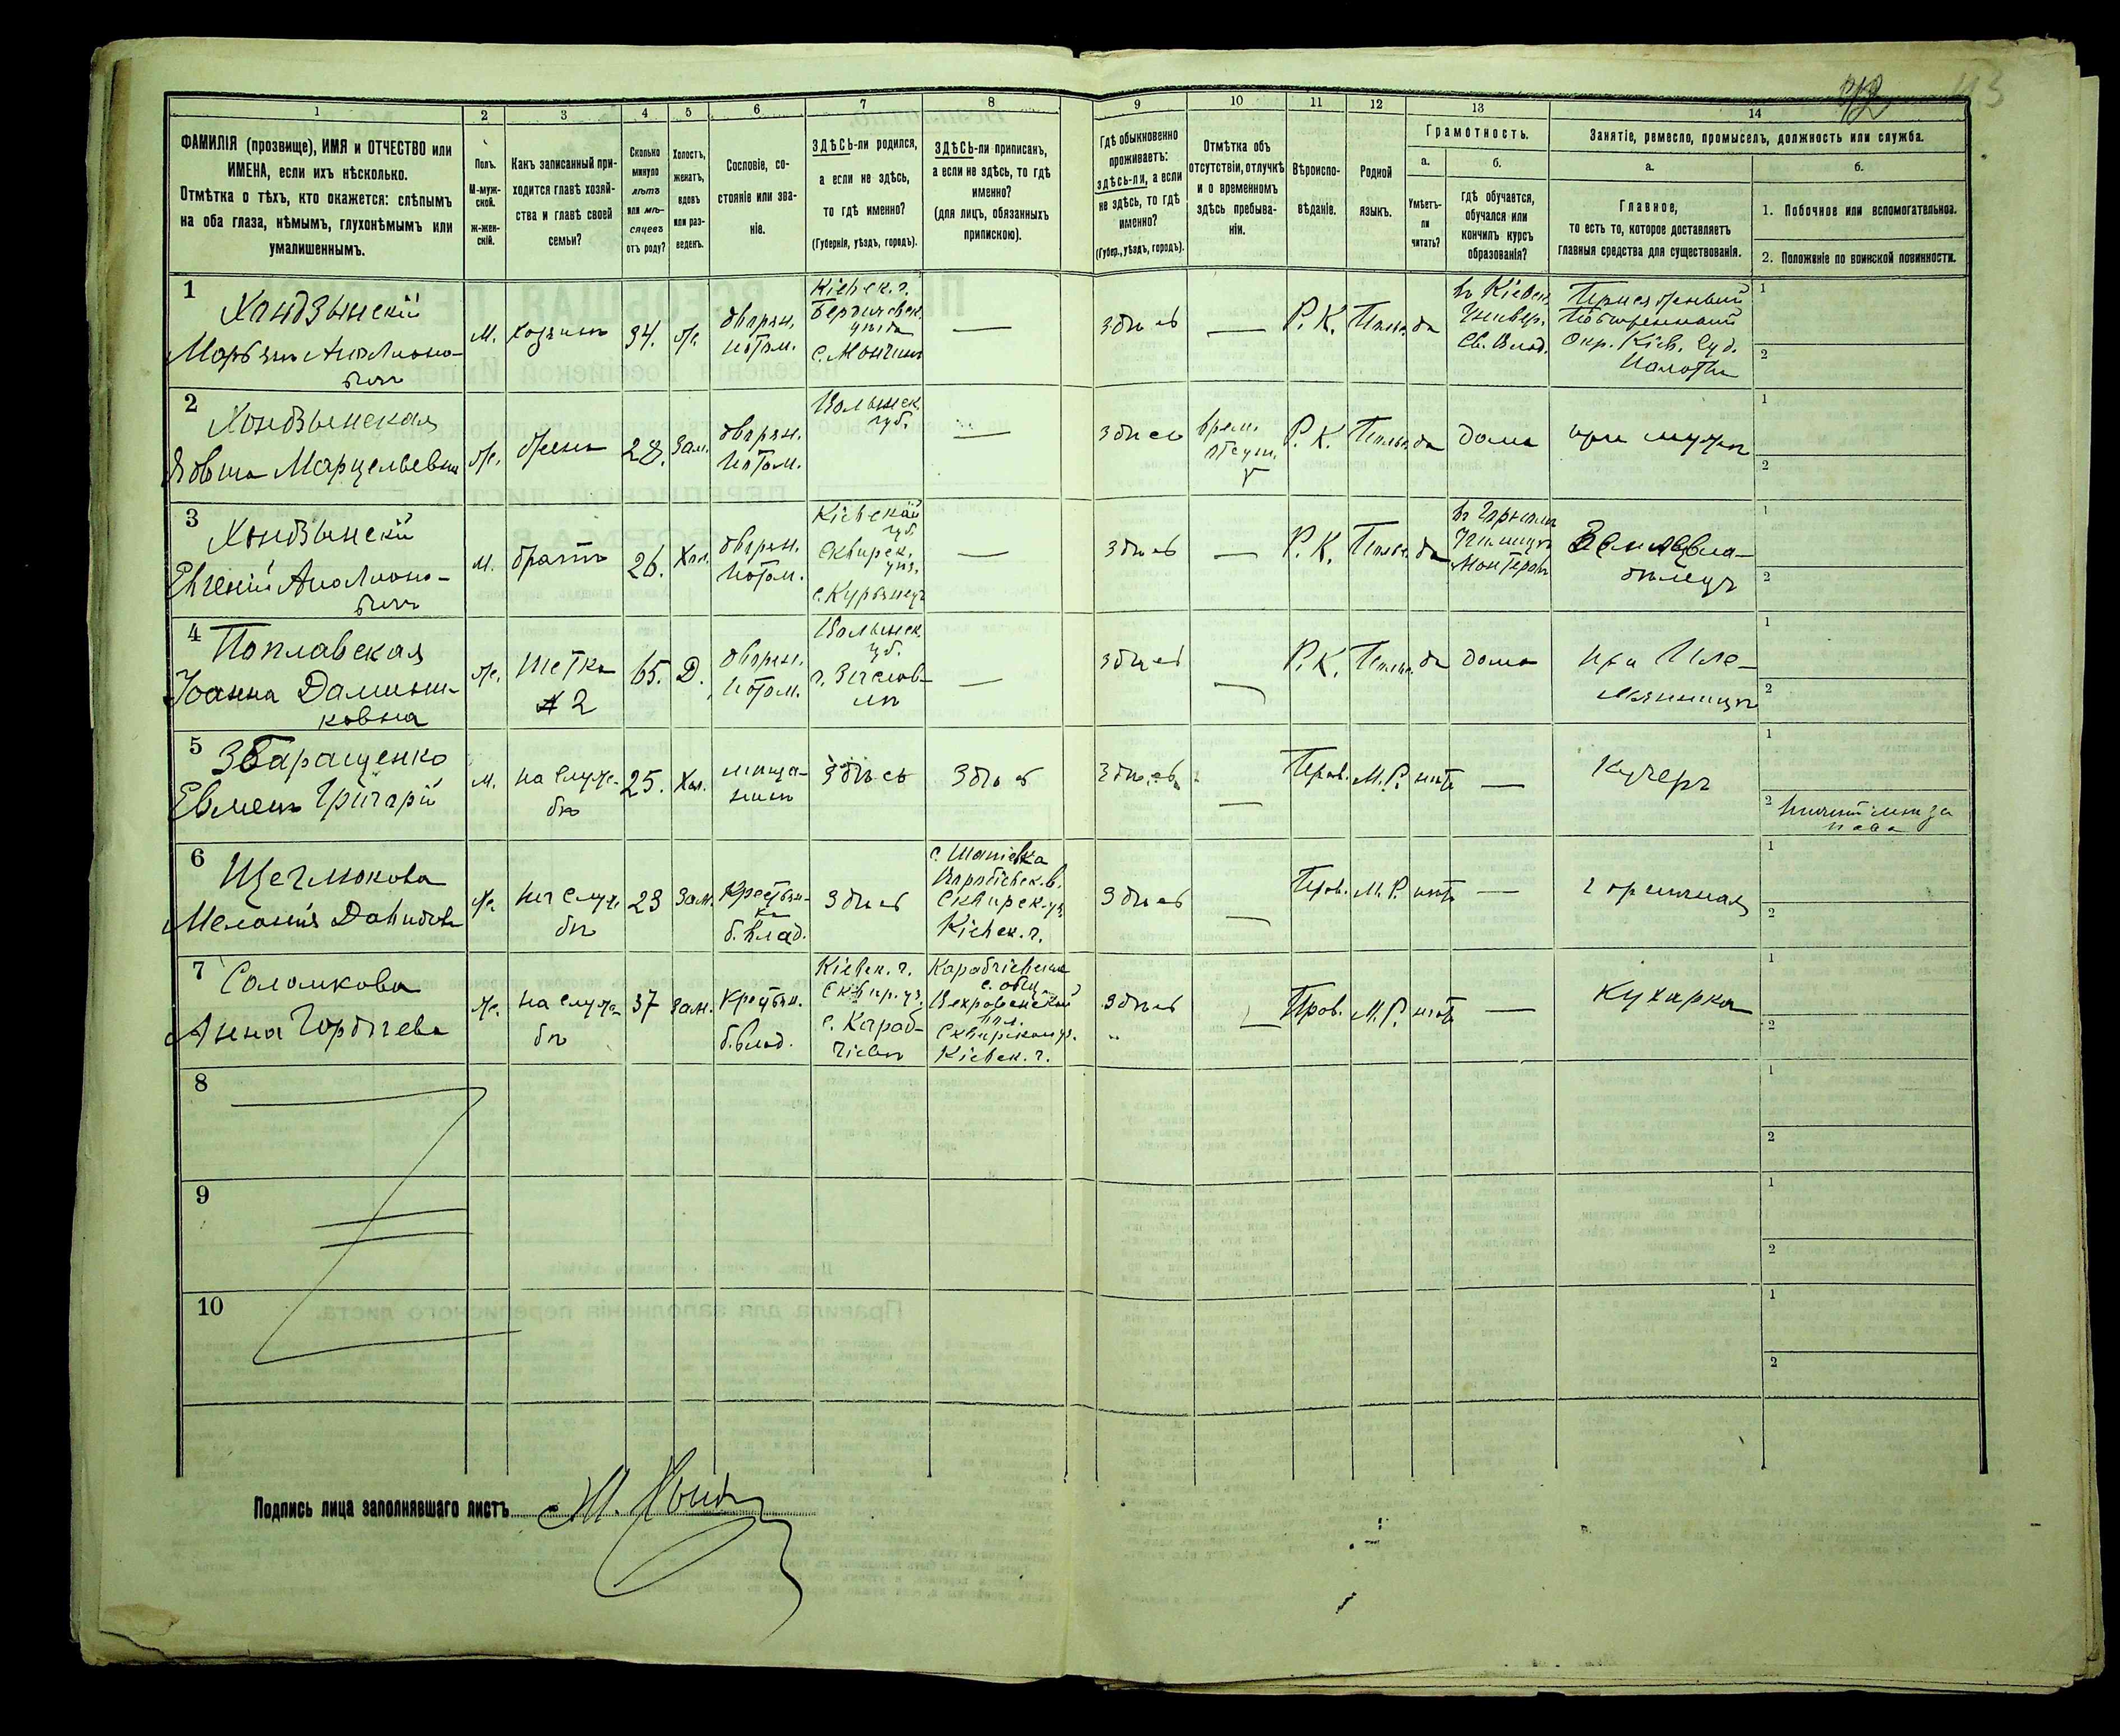 113
1 2 3 4 5 6 7 8 9 10 11 12 13 14
ФАМИЛІЯ (прозвище), ИМЯ и ОТЧЕСТВО или
ИМЕНА, если ихъ нѣсколько.
Отмѣтка о тѣхъ, кто окажется: слѣпымъ
на оба глаза, нѣмымъ, глухонѣмымъ или
умалишеннымъ.
Полъ.
М-муж-
ской.
Ж-жен-
скій.
Какъ записанный при-
ходится главѣ хозяй-
ства и главѣ своей
семьи?
Сколько
минуло
лѣтъ
или мѣ-
сяцевъ
отъ роду?
Холостъ,
женатъ,
вдовъ
или раз-
веденъ.
Сословіе, со-
стояніе или зва-
ніе.
ЗДѢСЬ-ли родился,
а если не здѣсь,
то гдѣ именно?
(Губернія, уѣздъ, городъ).
ЗДѢСЬ-ли приписанъ,
а если не здѣсь, то гдѣ
именно?
(для лицъ, обязанныхъ
припискою).
Гдѣ обыкновенно
проживаетъ:
здѣсь-ли, а если
не здѣсь, то гдѣ
именно?
(Губер., уѣздъ, городъ).
Отмѣтка объ
отсутствіи, отлучкѣ
и о временномъ
здѣсь пребыва-
ніи.
Вѣроиспо-
вѣданіе.
Родной
языкъ.
Грамотность.
а.
Умѣетъ-
ли
читать?
б.
гдѣ обучается,
обучался или
кончилъ курсъ
образованія?
Занятіе, ремесло, промыселъ, должность или служба.
а.
Главное,
то есть то, которое доставляетъ
главныя средства для существованія.
б.
1. Побочное или вспомогательное.
2. Положеніе по воинской повинности.
1
Хондзынскій
М.
хозяинъ
34.
ж.
дворян.
потом.
Кіевск. г.
Бердичевск.
уѣзда
с. Мончинъ
—
здѣсь
—
Р. К.
Польск.
да
въ Кіевск.
Универ.
Св. Влад.
Присяжный
Повѣренный
Окр. Кіев. Суд.
Палаты
1
2
2
Хондзынская
Ядвига Марцельевна
ж.
жена
28.
Зам.
дворян.
потом.
Волынск.
губ.
—
здѣсь
врем.
отсут.
Р. К.
Польск.
да
дома
при мужѣ
1
2
3
Хондзынскій
М.
братъ
26.
Хол.
дворян.
потом.
Кіевской
губ.
Сквирск.
уѣз.
—
здѣсь
—
Р. К.
Польск.
да
Землевла-
дѣлецъ
1
2
4
Поплавская
Іоанна Домини-
ковна
ж.
тетка
2
65.
Д.
дворян.
потом.
Волынск.
губ.
—
здѣсь
—
Р. К.
Польск.
да
дома
при Пле-
мянницѣ
1
2
5
Збаращенко
Евмен Григорій
м.
на служ-
бѣ
25.
Хол.
мѣща-
нинъ
здѣсь
здѣсь
здѣсь
—
Прав.
М. Р.
нѣтъ
—
Кучеръ
1
2
6
Щеглюкова
Меланія Давидова
ж.
на служ
бѣ
23
Зам.
Крестьян-
ка
б. влад.
здѣсь
Сквирск. уѣз.
Кіевск. г.
здѣсь
—
Прав.
М. Р.
нѣтъ
—
горничная
1
2
7
Соломкова
Анна
ж.
на служ-
бѣ
37
Зам.
Крестьян.
б. влад.
Кіевск. г.
Сквир. уѣз.
с. Караб-
чіевъ
Карабчіевское
с. общ.
Сквирскаго уѣз.
Кіевск. г.
здѣсь
Прав.
М. Р.
нѣтъ
—
Кухарка
1
2
8
1
2
9
1
2
10
1
2
Подпись лица заполнявшаго листъ